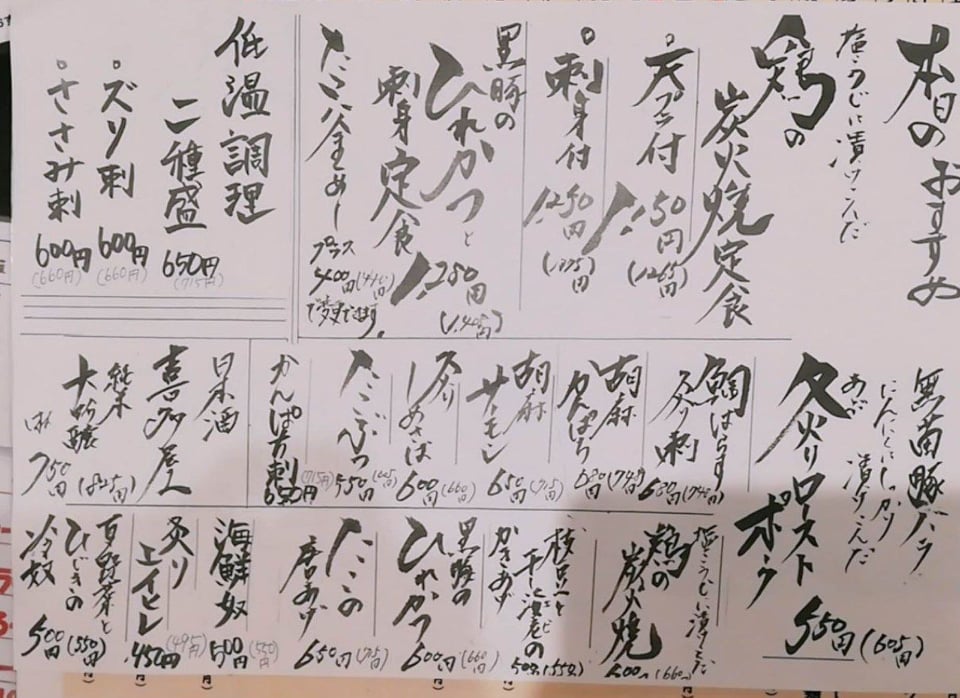 本日のおすすめ
塩こうじに漬けこんだ
鶏の
炭火焼定食
。天プラ付
1,150円
(1,265円)
。刺身付
1,250円
(1,375)
黒豚の
ひれかつと
刺身定食
1,280円
(1,408円)
たこ釜めし
プラス
400円(440円)
で変更できます。
低温調理
二種盛
650円
(715円)
。ズリ刺
600円
(660円)
。ささみ刺
600円
(660円)
無菌豚バラ
にんにくにしっかり
漬けこんだ
炙りロースト
ポーク
550円(605円)
鯛はらす
炙り刺
680(748円)
胡麻
かんぱち
680(748円)
胡麻
サーモン
650(715円)
炙り
しめさば
600円(660)
たこぶつ
550円
かんぱち刺
650円
(715円)
日本酒
喜多屋
純米
大吟醸
750円
(825円)
塩こうじに漬こんだ
鶏の
炭火焼
600円(660円)
枝豆と
干し
かきあげ
500円(550)
黒豚の
ひれかつ
600円(660円)
たこの
唐あげ
650円(715)
海鮮奴
500円(550円)
炙り
エイヒレ
450円(495円)
夏野菜と
ひじきの
冷奴
500円(550円)